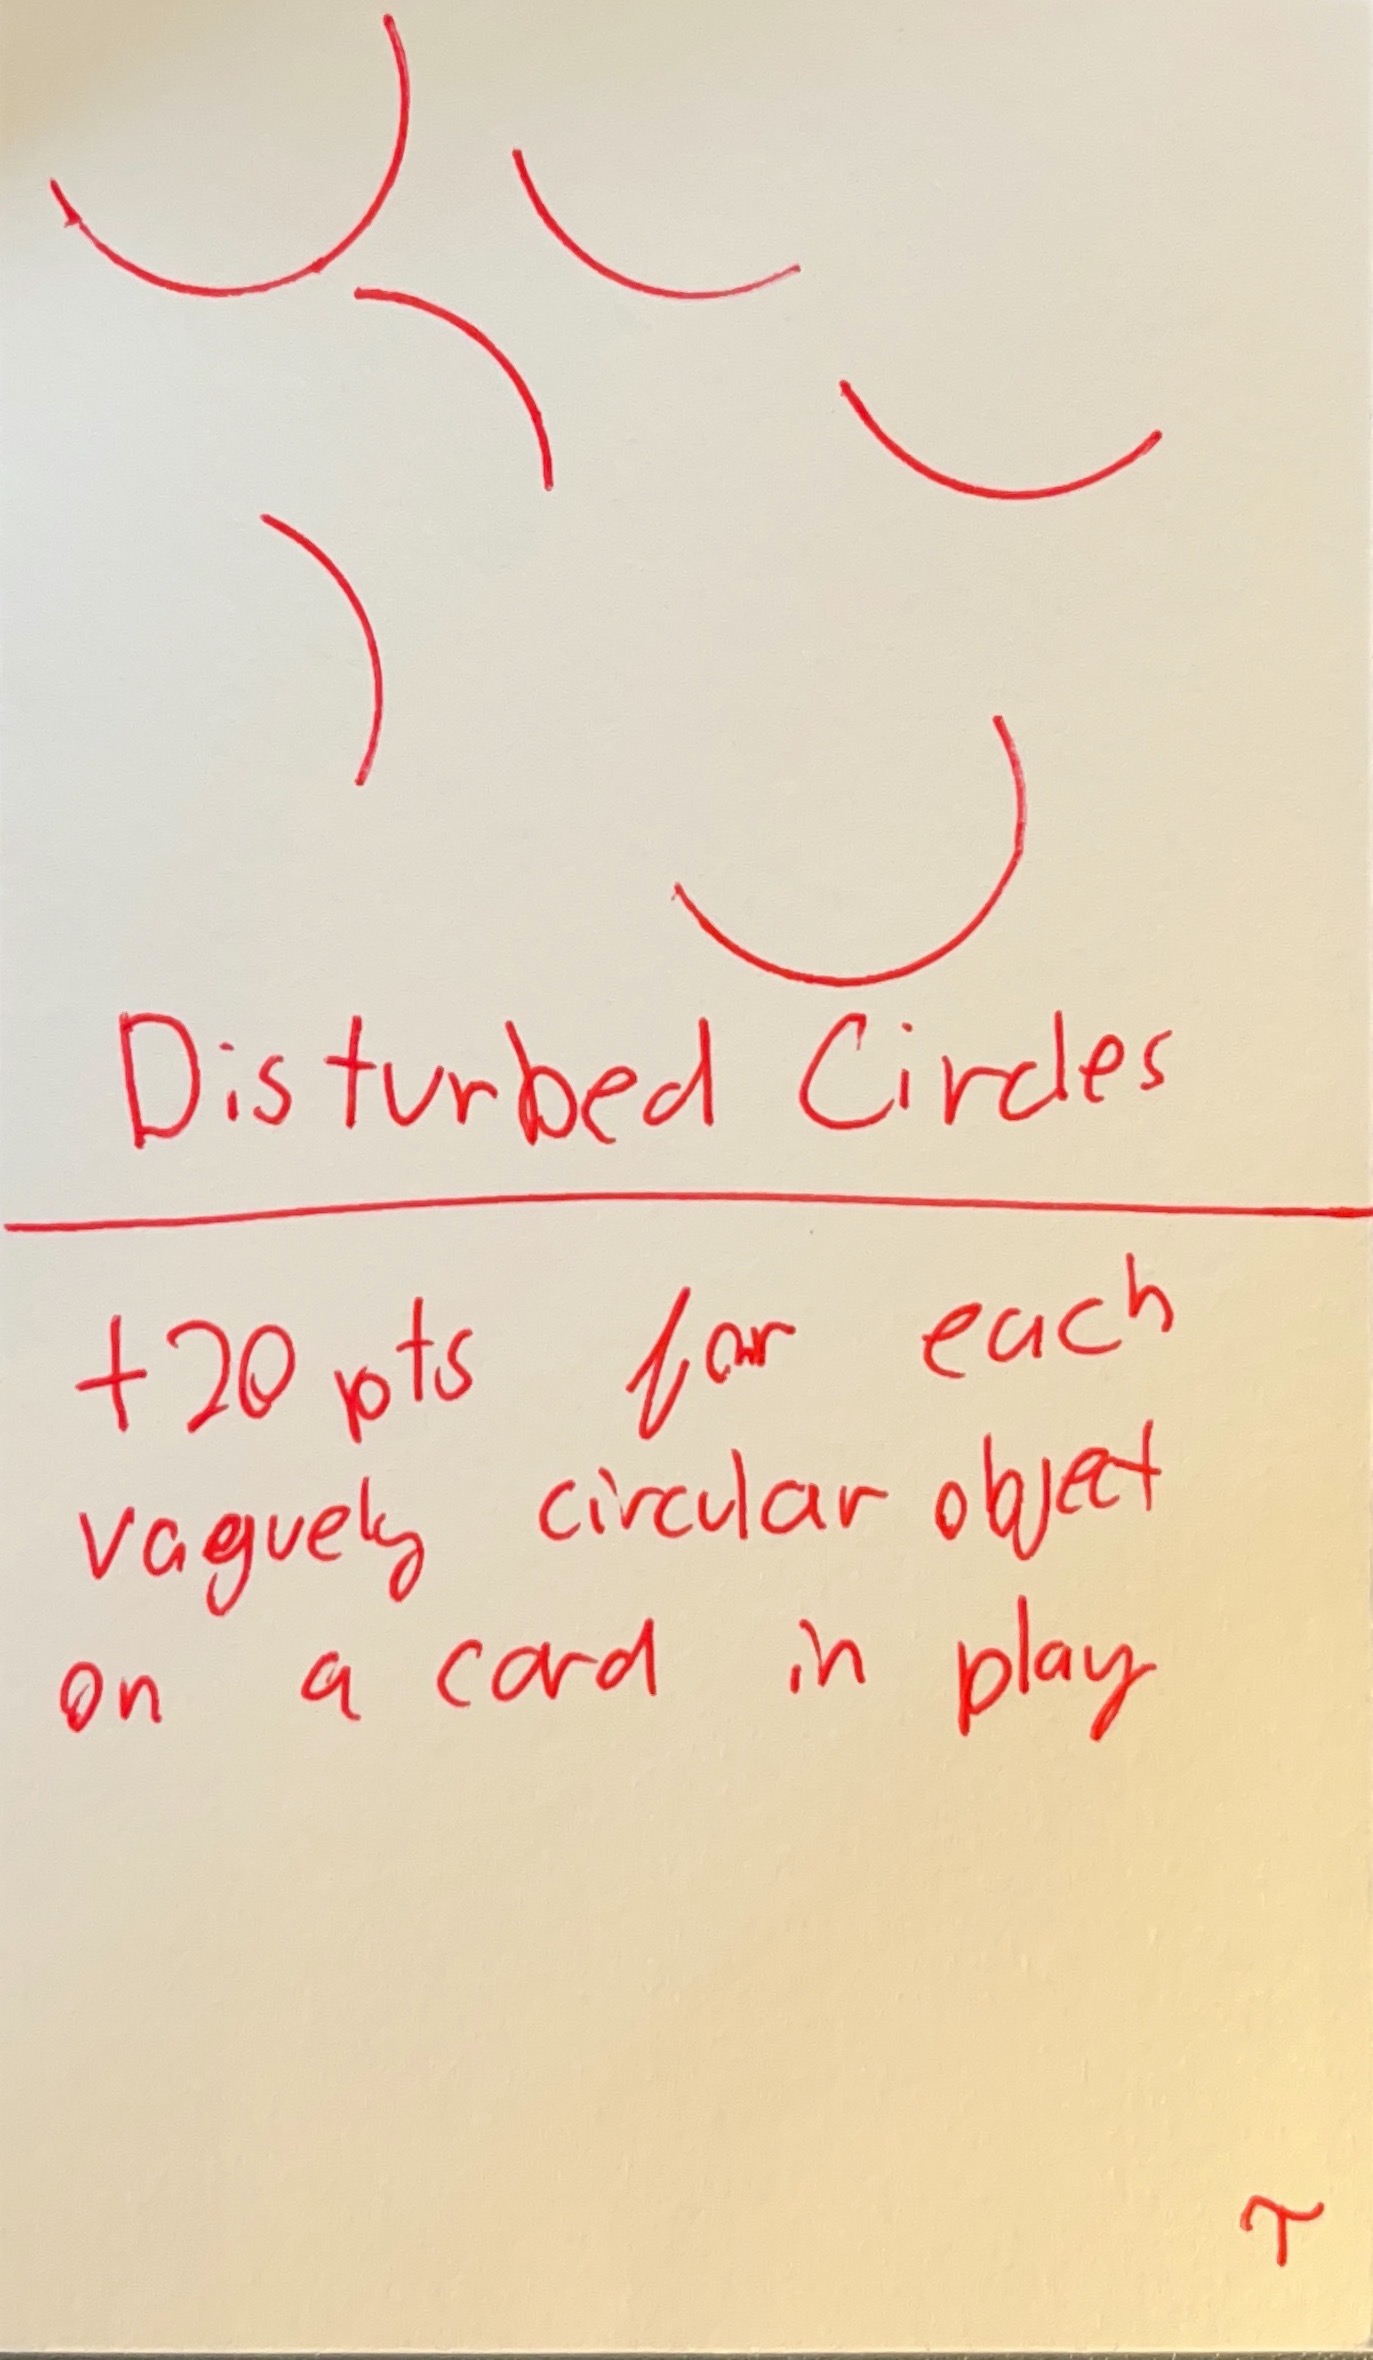 Disturbed Circles
+20 pts for each
vaguely circular object
on a card in play
τ